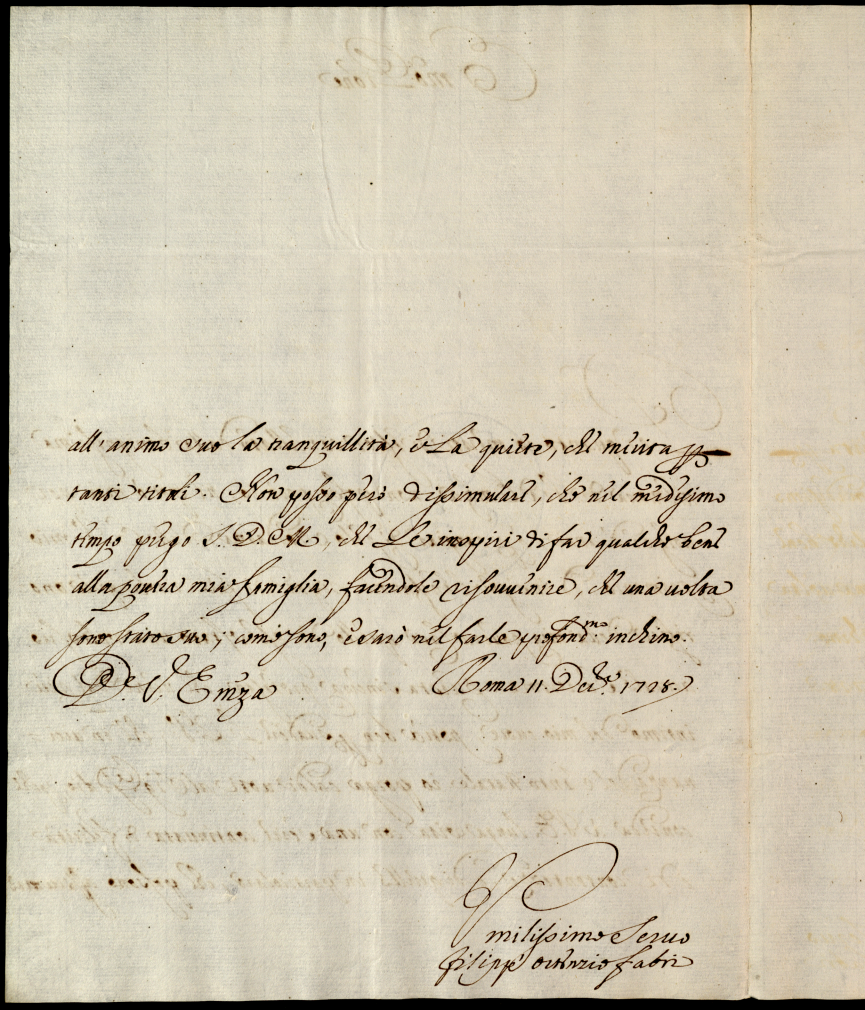 all'animo suo la tranquillità, e La quiete, che merita p
tanti titoli. Non posso però dissimulare, che nel medesimo
tempo prego S. D. M., che Le inspiri di far qualche bene
alla povera mia famiglia, facendole risouvenire, che una uolta
sono stato suo, come sono, e sarò nel farle profond.mo inchino.
D. V. Emza Roma 11. Dec.e 1728.
Vmilissimo Seruo
filippo ortenzio fabri